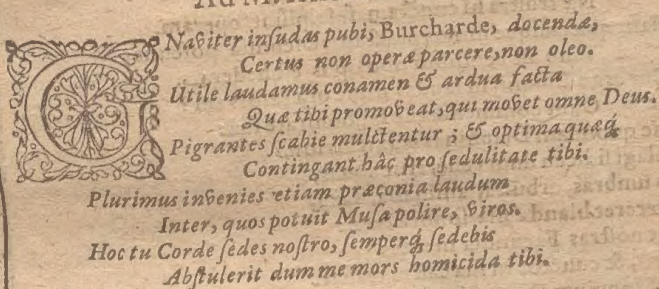 GNaviter inſudas pubi, Burcharde, docendæ,
Certus non operæ parcere, non oleo.
Utile laudamus conamen & ardua facta
Quæ tibi promoveat, qui movet omne Deus.
Pigrantes ſcabie multtentur ; & optima quæq́;
Contingant hâc pro ſedulitate tibi.
Plurimus invenies etiam præconia laudum
Inter, quos potuit Muſa polire, viros.
Hoc tu Corde ſedes noſtro, ſemperq́; ſedebis
Abſtulerit dum me mors homicida tibi.